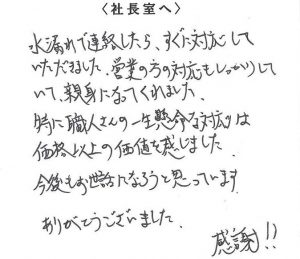 〈社長室へ〉
水漏れで連絡したら、すぐに対応して
いただきました。営業の方の対応もしっかりして
いて、親身になってくれました。
特に職人さんの一生懸命な対応は
価格以上の価値を感じました。
今後もお世話になろうと思っています
ありがとうございました。
感謝!!